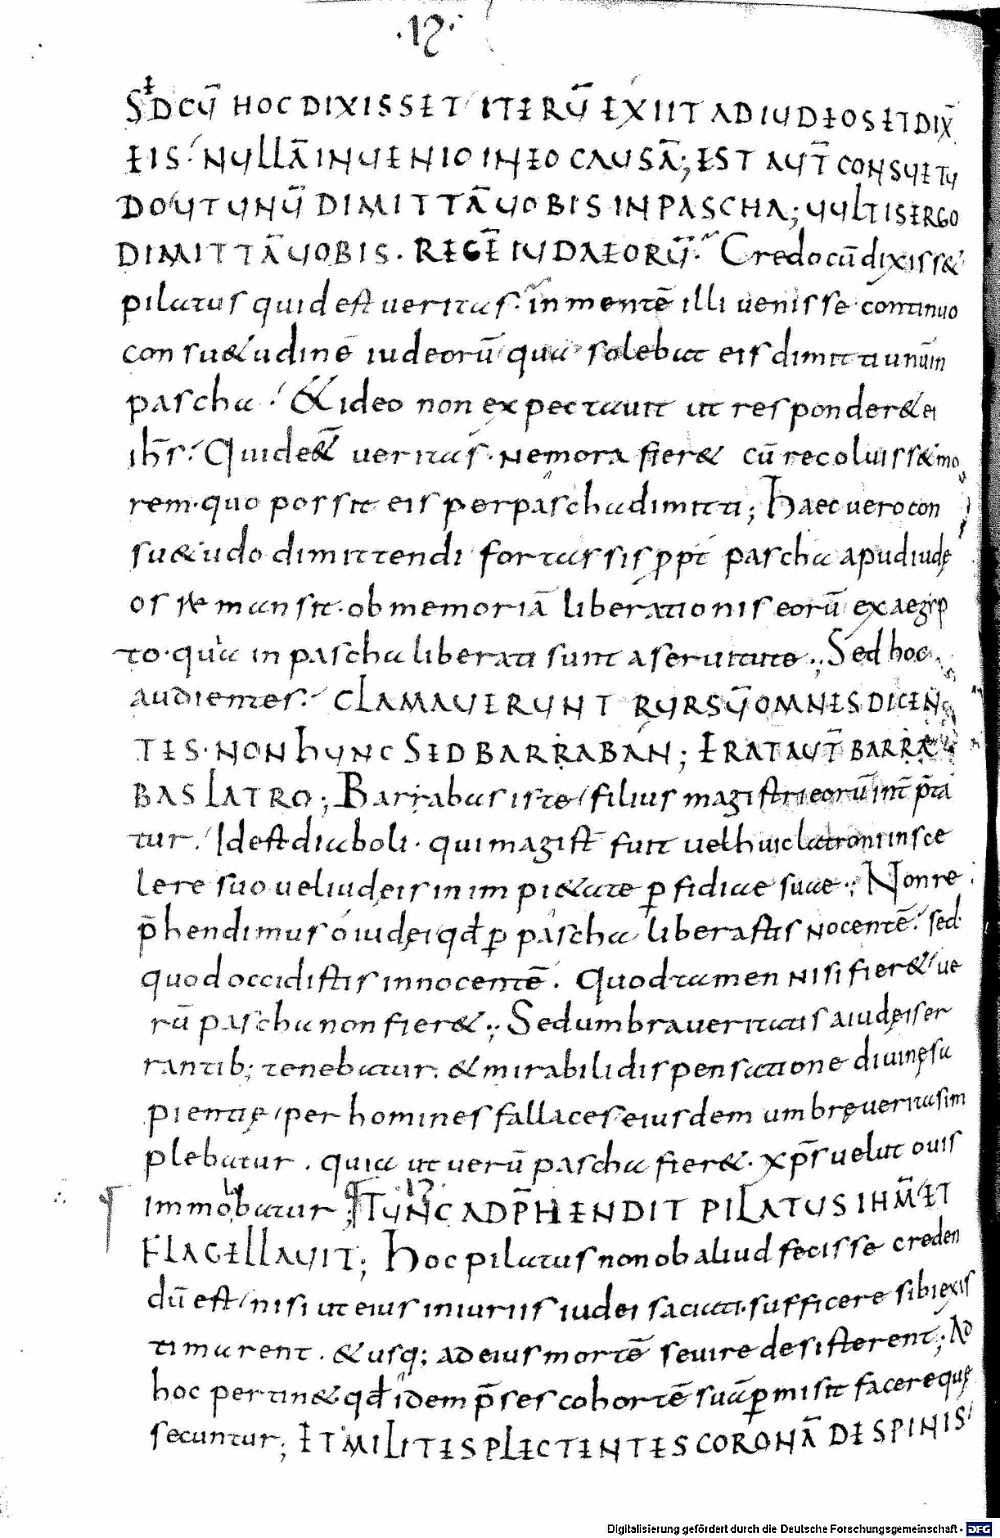 ·12·
SED CŪ HOC DIXISSET ITERŪ EXIIT AD IUDEOS ET DIX̄
EIS· NULLĀ INUENIO IN EO CAUSĀ; EST AUT̄ CONSUETU
DO UT UNŪ DIMITTĀ UOBIS IN PASCHA; UULTIS ERGO
DIMITTĀ UOBIS· REGĒ IUDAEORŪ· Credo cū dixiss&
pilatus quid est ueritas· in mentē illi uenisse continuo
consu&udinē iudeorū qua solebat eis dimitti unū in
pascha· & ideo non expectauit ut responder& ei
ih̄s· Quid ē ueritas· ne mora fier& cū recoluiss& mo
rem· quo possit eis per pascha dimitti; Haec uero con
su&udo dimittendi fortassis ꝓpt̄ pascha apud iudę
os remansit· ob memoriā liberationis eorū ex aegyp
to· quia in pascha liberati sunt a seruitute·; Sed hoc
audientes· CLAMAUERUNT RURSŪ OMNES DICEN
TES· NON HUNC SED BARRABAN; ERAT AUT̄ BARRA
BAS LATRO; Barrabas iste filius magistri eorū int̄ p̄ta
tur· Id est diaboli· qui magist̄ fuit uel huic latroni in sce
lere suo uel iudeis in impi&ate ꝑfidiae suae·; Non re
p̄hendimus o iudęi qđ ꝑ pascha liberastis nocentē· sed
quod occidistis innocentē· Quod tamen nisi fier& ue
rū pascha non fier&·; Sed umbra ueritatis a iudęis er
rantib; tenebatur· & mirabili dispensatione diuinę sa
pientię per homines fallaces eiusdem umbrę ueritas im
plebatur· quia ut uerū pascha fier&· xp̄s uelut ouis
immolabatur; ¶ 13 TUNC ADP̄HENDIT PILATUS IHM̄ ET
FLAGELLAUIT; Hoc pilatus non ob aliud fecisse creden
dū est nisi ut eius iniuriis iudei saciati· sufficere sibi exis
timarent· & usq; ad eius mortē seuire desisterent; Ad
hoc pertin& qđ idem p̄ses cohortē suā ꝑmisit facere quę
secuntur; ET MILITES PLECTENTES CORONĀ DE SPINIS
Digitalisierung gefördert durch die Deutsche Forschungsgemeinschaft - DFG